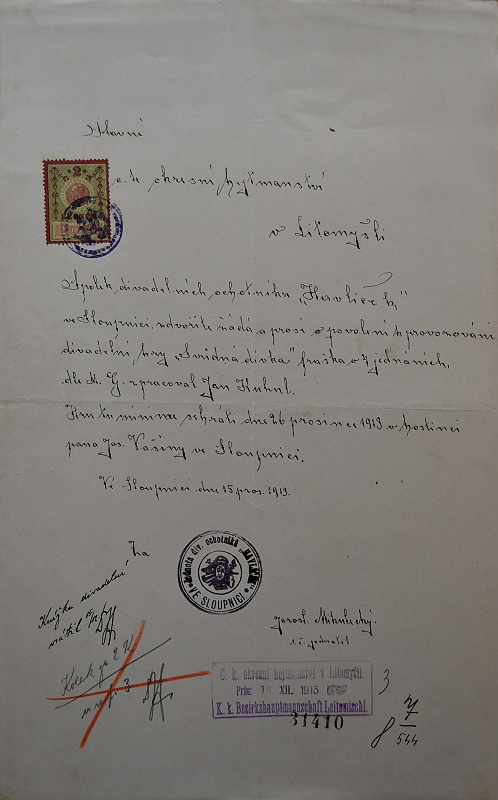 Slavné
2
c. k. okresní hejtmanství
v Litomyšli
Spolek divadelních ochotníku „Havlíček"
ve Sloupnici, zdvořile žádá a prosí o povolení k provozování
divadelní hry „Svůdná dívka" fraška o 4 jednáních,
dle K. G. zpracoval Jan Kuhnl.
Hru tu miníme sehráti dne 26 prosince 1913 v hostinci
pana Jos. Vašiny ve Sloupnici.
Ve Sloupnici dne 15 pros. 1913.
Za
Jednota div. ochotníků „HAVLÍČEK"
VE SLOUPNICI
Knížku divadelní
vrátil
Jarosl. Mikulecký
t. č. jednatel
Kolek za 2 K
3
C. k. okresní hejtmanství v Litomyšli.
Präs: 15. XII. 1913
K. k. Bezirkshauptmannschaft Leitomischl.
31410
3
8 7/544